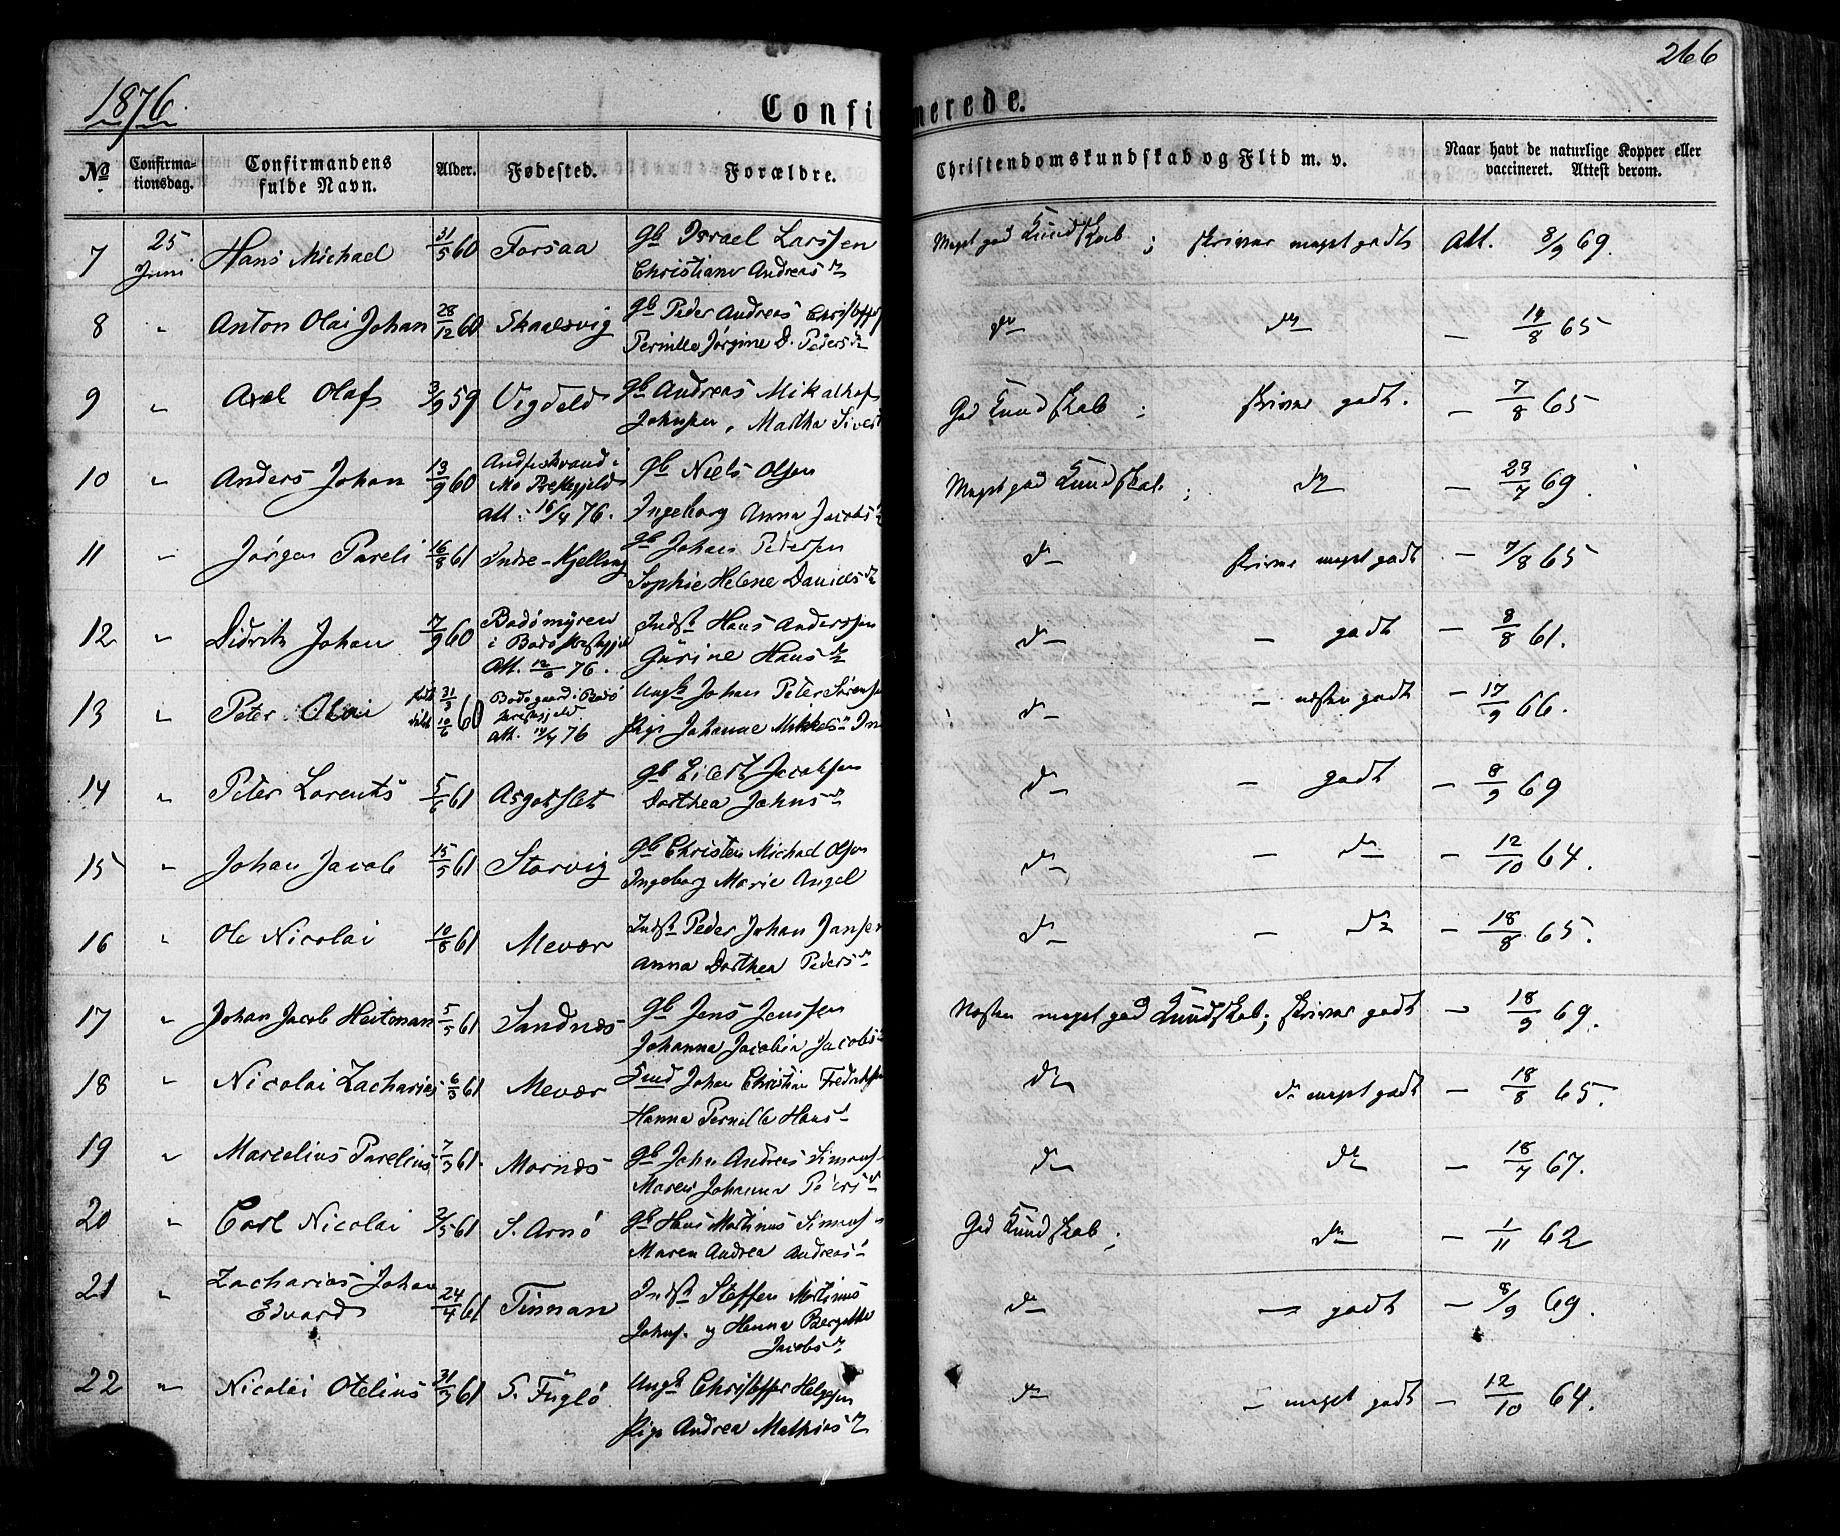 1876.
266
Confirmerede.
No
Confirmationsdag.
Confirmandens fulde Navn.
Alder.
Fødested.
Forældre.
Christendomskundskab og Flid m. v.
Naar havt de naturlige Kopper eller vaccineret. Attest derom.
7 25 Juni Hans Michael 31/5 60 Forsaa Gb Israel Larssen
Christiane Andreas
Meget god Kundskab ; skriver meget godt Att. 8/9 69.
8 " Anton Olai Johan 28/12 60 Skaalsvig Gb Peder Andreas Christoff
Pernille Jørgine D. Peders
do do — 14/8 65
9 " Axel Olaf 3/9 59 Vigdeld Gb Andreas Mikal
Johnsen, Martha Sivert
God Kundskab ; skriver godt. — 7/8 65
10 " Anders Johan 13/9 60 i Mo Præstegjeld
Att: 16/4 76.
Gb Niels Olsen
Ingeborg Anna Jacobs
Meget god Kundskab ; do — 23/7 69.
11 " Jørgen Pareli 16/8 61 Indre-Kjelling Gb Johan Petersen
Sophie Helene Daniels
do skriver meget godt — 7/8 65
12 " Didrik Johan 7/9 60 Bodømyren
i Bodø Præstegjeld
Att. 12/6 76.
Indst Hans Anderssen
Gurine Hans
do — godt — 8/8 61.
13 " Peter Olai 31/3 10/6 60 Bodøgaard i Bodø
Præstegjeld.
Att. 14/4 76
Ungk Johan Peter Sørens
Pige Johanna Mikkels
do — næsten godt — 17/9 66.
14 " Peter Lorents 5/6 61 Asgotslet Gb Eilert Jacobsen
Dorthea Johns
do — godt — 8/9 69
15 " Johan Jacob 15/5 61 Storvig Gb Christen Michael Olsen
Ingeborg Marie Angel
do — do — 12/10 64.
16 " Ole Nicolai 10/8 61 Mevær Indst Peder Johan Jansen
Anna Dorthea Peders
do — do — 18/8 65.
17 " Johan Jacob Heitman 5/5 61 Sandnæs Gb Jens Jenssen
Johanna Jacobia Jacobs
Næsten meget god Kundskab; skriver godt — 18/9 69.
18 " Nicolai Zacharias 6/3 61 Mevær Johan Christian Fredriksen
Hanna Pernille Hans
do do meget godt — 18/8 65.
19 " Marselius Parelius 7/3 61. Mornæs Gb John Andreas Simons
Maren Johanna Peders
do do — 18/7 67.
20 " Carl Nicolai 2/5 61 S. Arnø Gb Hans Martinus Simons
Maren Andrea Andreas
God Kundskab ; do — 1/11 62
21 " Zacharias Johan
Edvard
24/4 61 Tinnan Indst Steffen Martinus
Johns. og Hanna Bergitte
Jacobs
do — godt — 8/9 69.
22 " Nicolai Otelius 31/3 61 S. Fuglø Ungk Christoffer Helgesen
Pige Andrea Mathias
do — meget godt — 12/10 64.